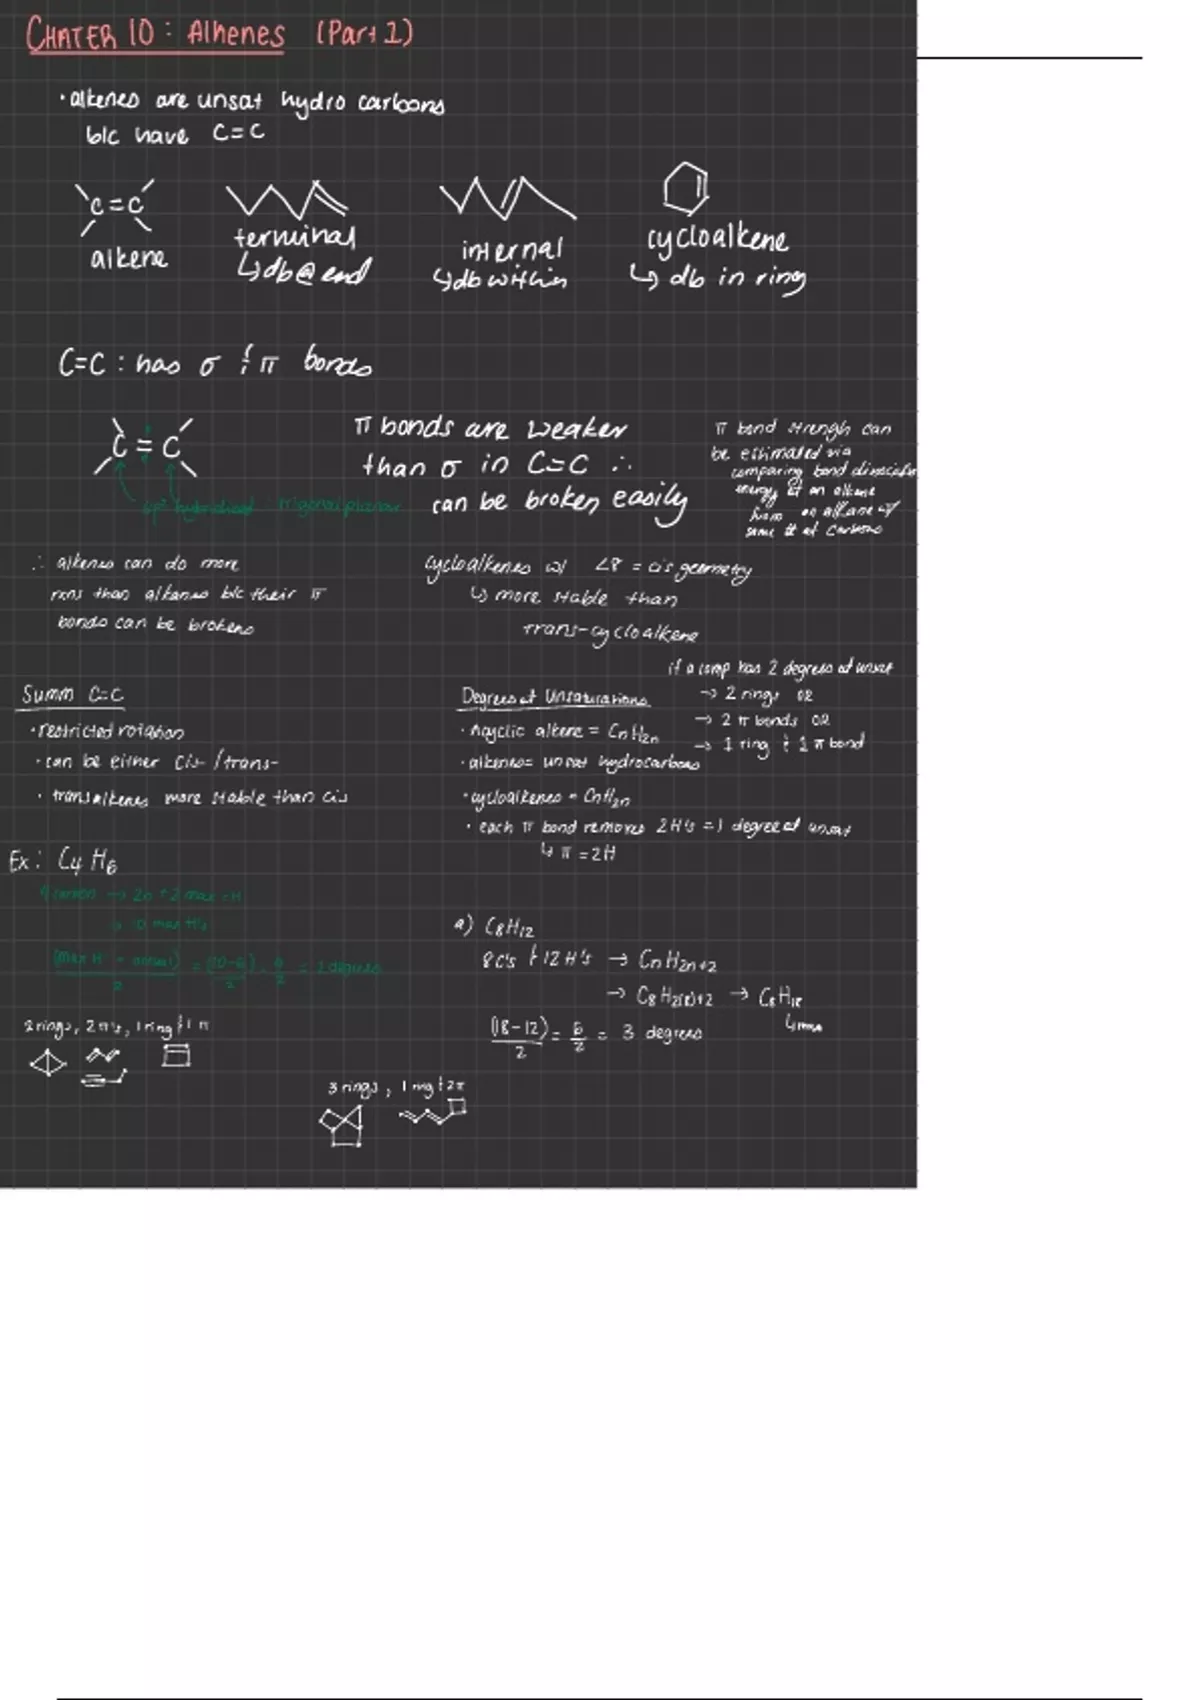 CHATER 10: Alkenes (Part 1)
• alkenes are unsat hydro carbons
b/c have C=C
C=C
alkene
terminal
↳ db @ end
internal
↳ db within
cycloalkene
↳ db in ring
C=C : has σ & π bonds
C=C
sp² hybridized trigonal planar
π bonds are weaker
than σ in C=C ∴
can be broken easily
π bond strength can
be estimated via
comparing bond
energy of an alkene
from an alkane w/
same # of carbons
∴ alkenes can do more
rxns than alkanes b/c their π
bonds can be broken
cycloalkenes w/ <8 = cis geometry
↳ more stable than
trans-cycloalkene
Summ C=C
• restricted rotation
• can be either cis-/trans-
• trans alkenes more stable than cis
Degrees of Unsaturations
• Acyclic alkene = CnH2n
• alkenes = unsat hydrocarbons
• cycloalkenes = CnH2n
• each π bond removes 2H's = 1 degree of unsat
↳ π = 2H
if a comp has 2 degrees of unsat
→ 2 rings OR
→ 2 π bonds OR
→ 1 ring & 1 π bond
Ex: C4H6
4 carbon → 2n+2 max = H
10 max H's
(max H - actual)/2 = (10-6)/2 = 4/2 = 2 degrees
2 rings, 2 π's, 1 ring & 1 π
a) C8H12
8 C's & 12 H's → CnH2n+2
→ C8H2(8)+2 → C8H18
↳ max
(18-12)/2 = 6/2 = 3 degrees
3 rings, 1 ring & 2π